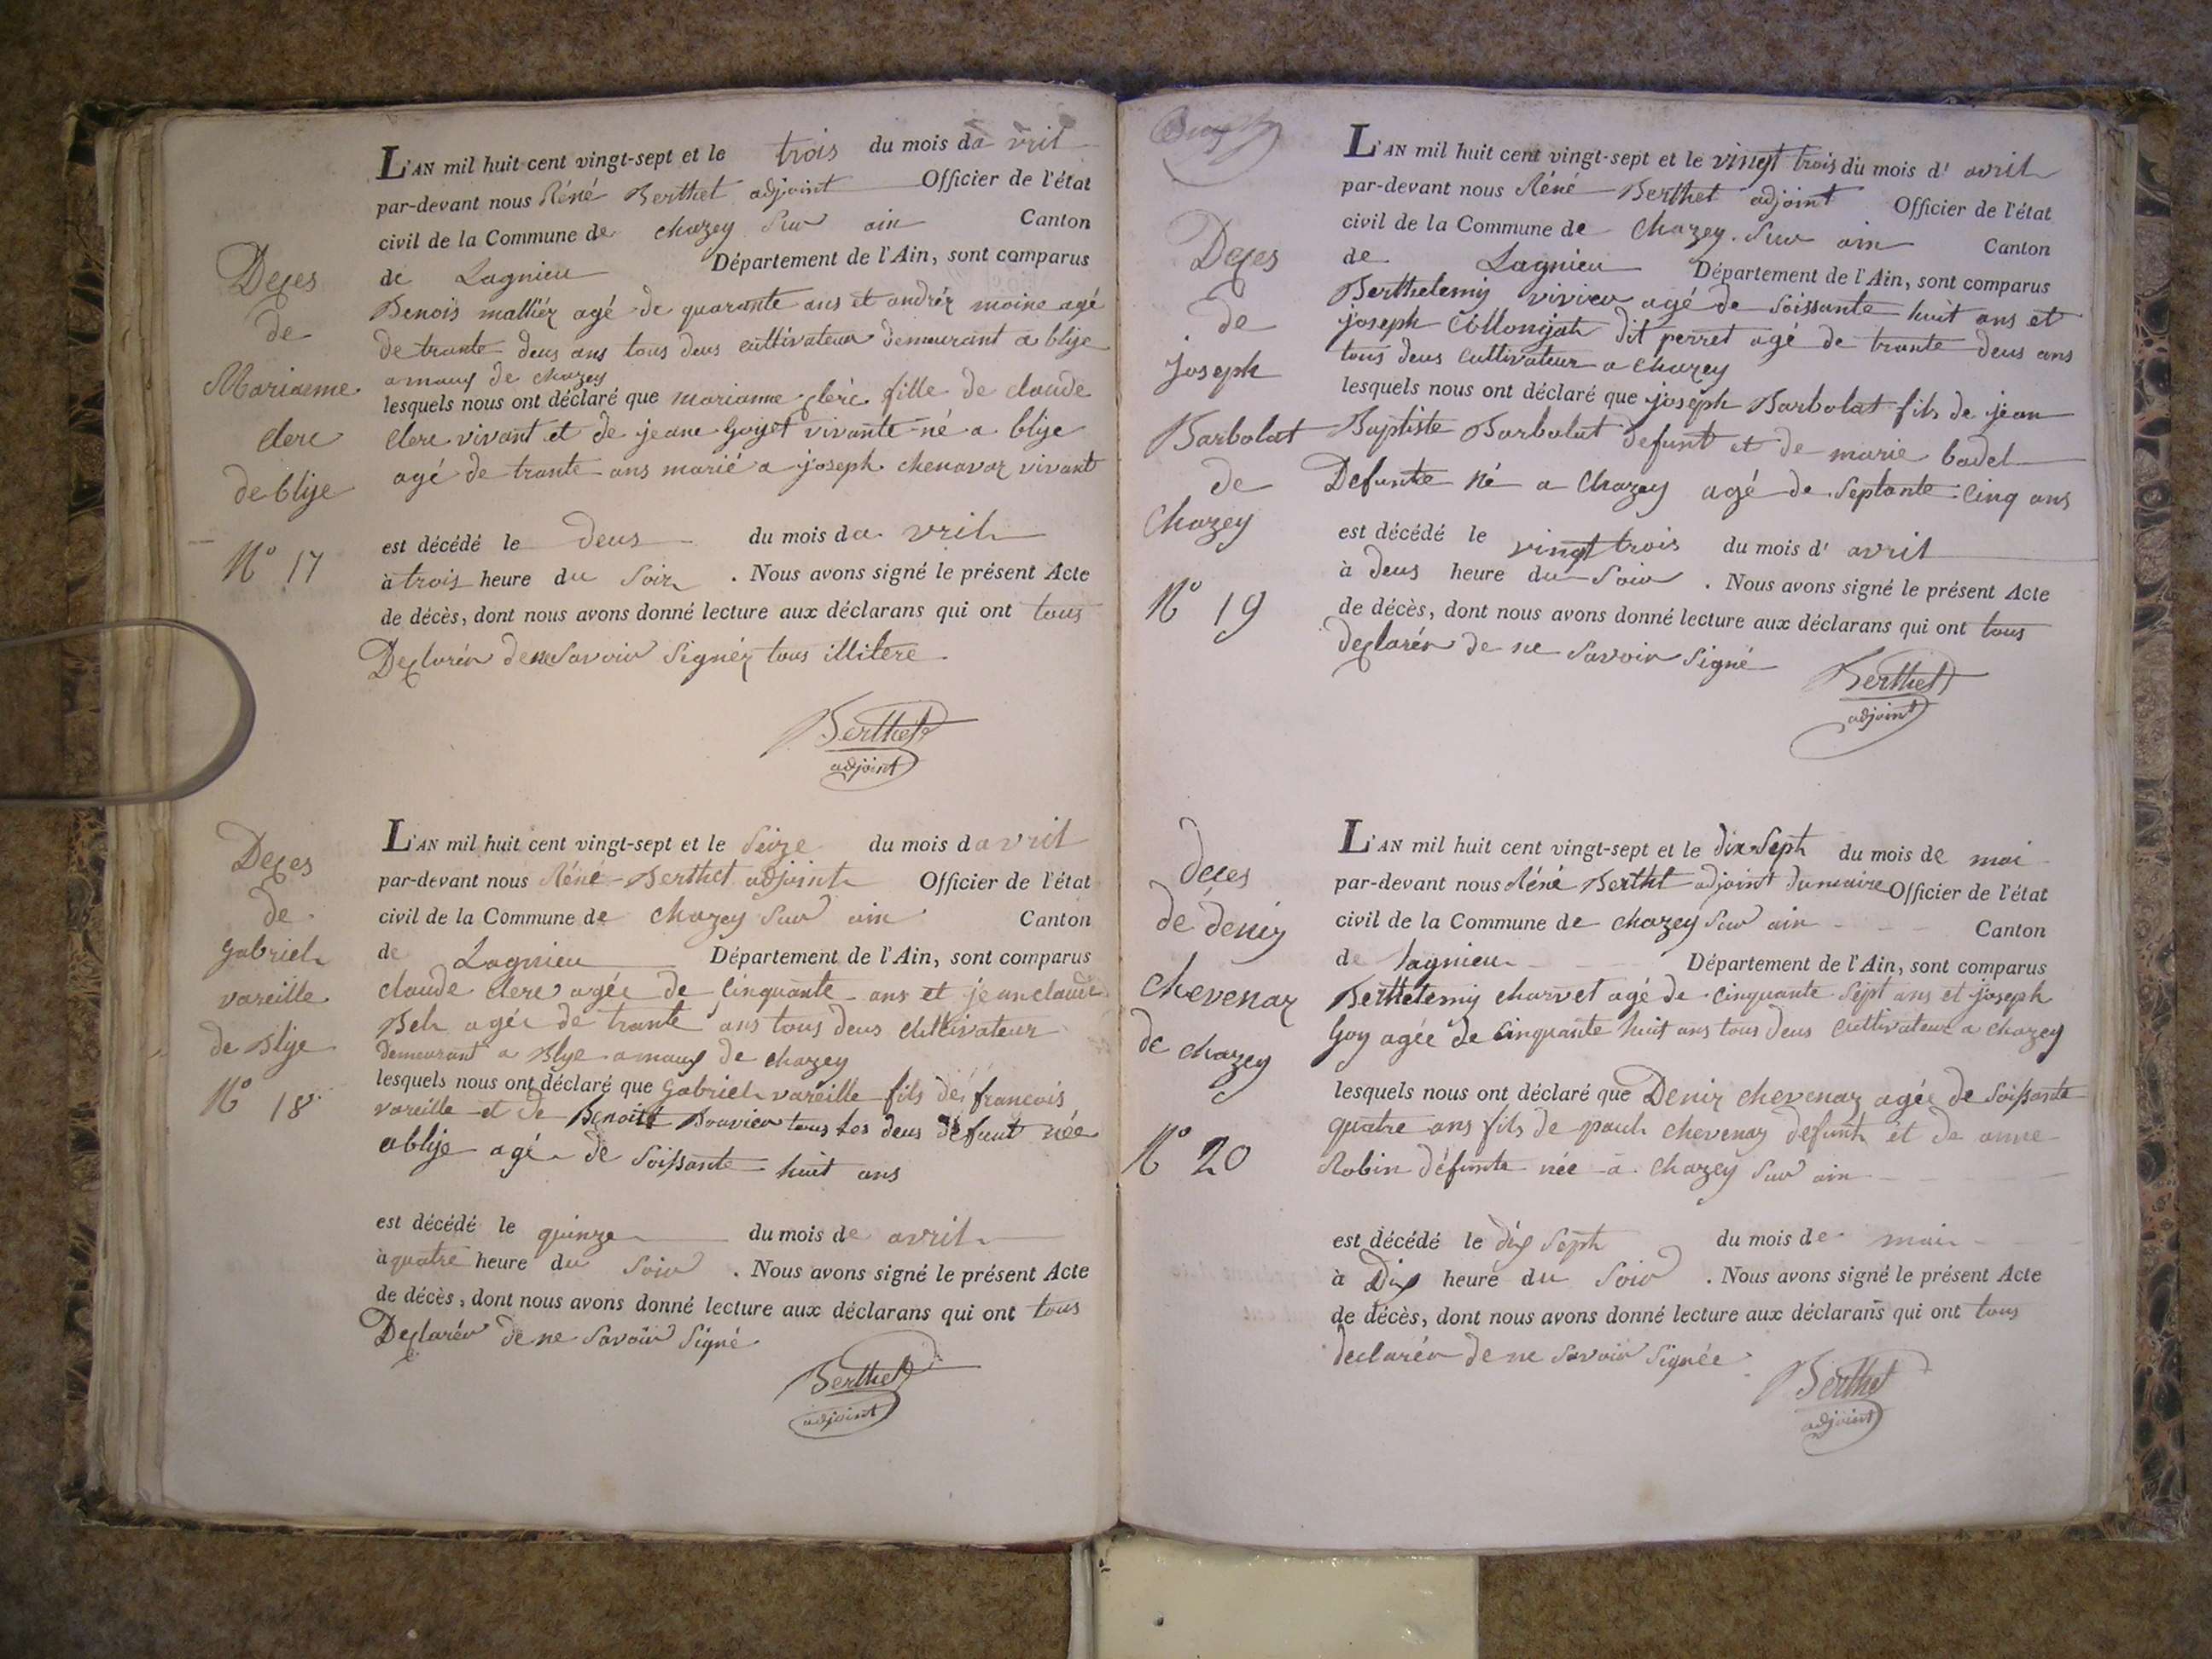 Deces
de
Marianne
clerc
de blije
N° 17
L'AN mil huit cent vingt-sept et le trois du mois da vril
par-devant nous Réné Berthet adjoint Officier de l'état
civil de la Commune de chazey Sur ain Canton
de Lagnieu Département de l'Ain, sont comparus
Benois malliér agé de quarante ans et andréz moine agé
de trante deus ans tous deus cultivateur demeurant a blije
amaux de chazey
lesquels nous ont déclaré que marianne clerc fille de claude
clerc vivant et de jeane Goyet vivante né a blije
agé de trante ans marié a joseph chenavaz vivant
est décédé le deus du mois da vril
à trois heure du Soir . Nous avons signé le présent Acte
de décès, dont nous avons donné lecture aux déclarans qui ont tous
Declarér de ne Savoir Signéz tous illitere
Berthet
adjoint
Deces
de
Gabriel
vareille
de Blije
N° 18
L'AN mil huit cent vingt-sept et le Seize du mois d avril
par-devant nous Réné Berthet adjoint Officier de l'état
civil de la Commune de chazey Sur ain Canton
de Lagnieu Département de l'Ain, sont comparus
claude clerc agée de Cinquante ans et jean claude
agée de trante ans tous deus cultivateur
demeurant a Blye amaux de chazey
lesquels nous ont déclaré que Gabriel vareille fils de francois
vareille et de Benoite Bouvier tous les deus defunt née
a blije agé de Soissante huit ans
est décédé le quinze du mois de avril
à quatre heure du Soir . Nous avons signé le présent Acte
de décès, dont nous avons donné lecture aux déclarans qui ont tous
Declarér de ne Savoir Signé
Berthet
adjoint
Deces
de
joseph
Barbolat
de
Chazey
N° 19
L'AN mil huit cent vingt-sept et le vingt trois du mois d' avril
par-devant nous Réné Berthet adjoint Officier de l'état
civil de la Commune de Chazey Sur ain Canton
de Lagnieu Département de l'Ain, sont comparus
Berthelemy vivier agé de Soissante huit ans et
joseph Collonjat dit perret agé de trante deus ans
tous deus Cultivateur a Chazey
lesquels nous ont déclaré que joseph Barbolat fils de jean
Baptiste Barbolat defunt et de marie badel
Defunte né a Chazey agé de Septante Cinq ans
est décédé le vingt trois du mois d' avril
à deus heure du Soir . Nous avons signé le présent Acte
de décès, dont nous avons donné lecture aux déclarans qui ont tous
declarér de ne Savoir Signé
Berthet
adjoint
deces
de deniz
chevenaz
de chazey
N° 20
L'AN mil huit cent vingt-sept et le dix Sept du mois de mai
par-devant nous Réné Berthet adjoint du maire Officier de l'état
civil de la Commune de chazey Sur ain Canton
de lagnieu Département de l'Ain, sont comparus
Berthelemy charvet agé de cinquante Sept ans et joseph
Goy agée de cinquante huit ans tous deus Cultivateur a chazey
lesquels nous ont déclaré que Deniz chevenaz agée de Soissante
quatre ans fils de paul chevenaz defunt et de anne
Robin défunte née a Chazey Sur ain
est décédé le dix Sept du mois de mai
à Dix heure du Soir . Nous avons signé le présent Acte
de décès, dont nous avons donné lecture aux déclarans qui ont tous
declarér de ne Savoir Signée
Berthet
adjoint